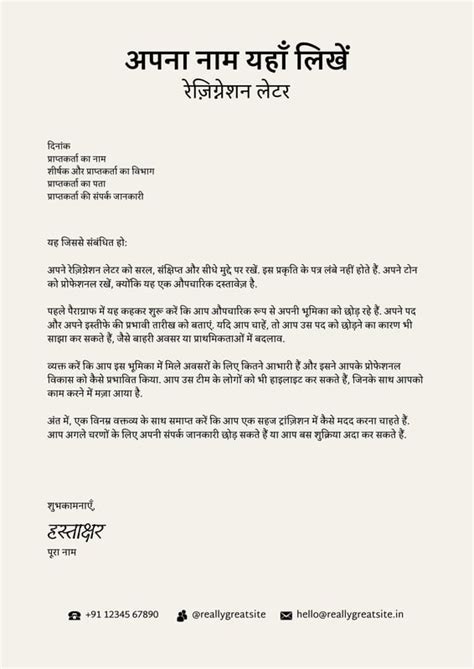 अपना नाम यहाँ लिखें
रेज़िग्नेशन लेटर
दिनांक
प्राप्तकर्ता का नाम
शीर्षक और प्राप्तकर्ता का विभाग
प्राप्तकर्ता का पता
प्राप्तकर्ता की संपर्क जानकारी
यह जिससे संबंधित हो:
अपने रेज़िग्नेशन लेटर को सरल, संक्षिप्त और सीधे मुद्दे पर रखें. इस प्रकृति के पत्र लंबे नहीं होते हैं. अपने टोन
को प्रोफेशनल रखें, क्योंकि यह एक औपचारिक दस्तावेज़ है.
पहले पैराग्राफ में यह कहकर शुरू करें कि आप औपचारिक रूप से अपनी भूमिका को छोड़ रहे हैं. अपने पद
और अपने इस्तीफे की प्रभावी तारीख को बताएं. यदि आप चाहें, तो आप उस पद को छोड़ने का कारण भी
साझा कर सकते हैं, जैसे बाहरी अवसर या प्राथमिकताओं में बदलाव.
व्यक्त करें कि आप इस भूमिका में मिले अवसरों के लिए कितने आभारी हैं और इसने आपके प्रोफेशनल
विकास को कैसे प्रभावित किया. आप उस टीम के लोगों को भी हाइलाइट कर सकते हैं, जिनके साथ आपको
काम करने में मज़ा आया है.
अंत में, एक विनम्र वक्तव्य के साथ समाप्त करें कि आप एक सहज ट्रांज़िशन में कैसे मदद करना चाहते हैं.
आप अगले चरणों के लिए अपनी संपर्क जानकारी छोड़ सकते हैं या आप बस शुक्रिया अदा कर सकते हैं.
शुभकामनाएँ,
हस्ताक्षर
पूरा नाम
+91 12345 67890 @reallygreatsite hello@reallygreatsite.in